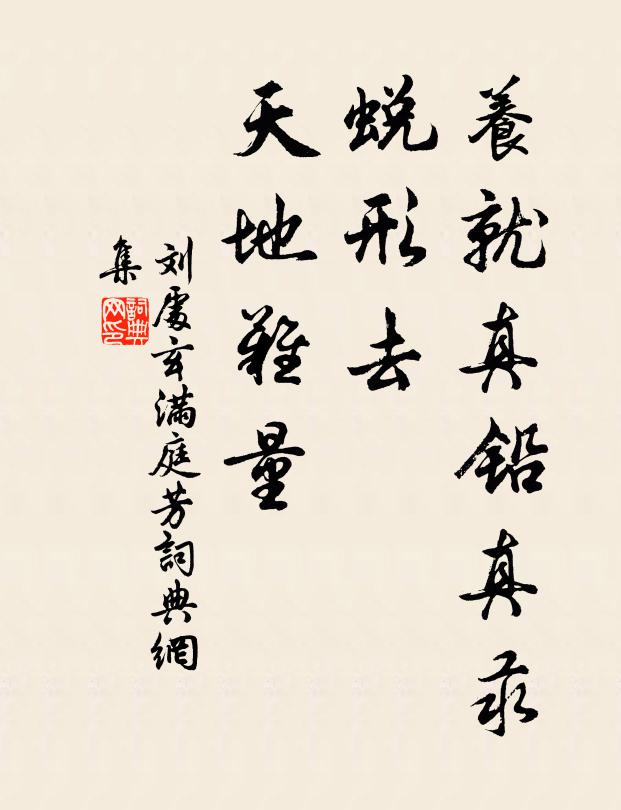 養就真鉛真汞
蛻形去
天地難量
刘處玄滿庭芳詞典網
集
詞典
网印